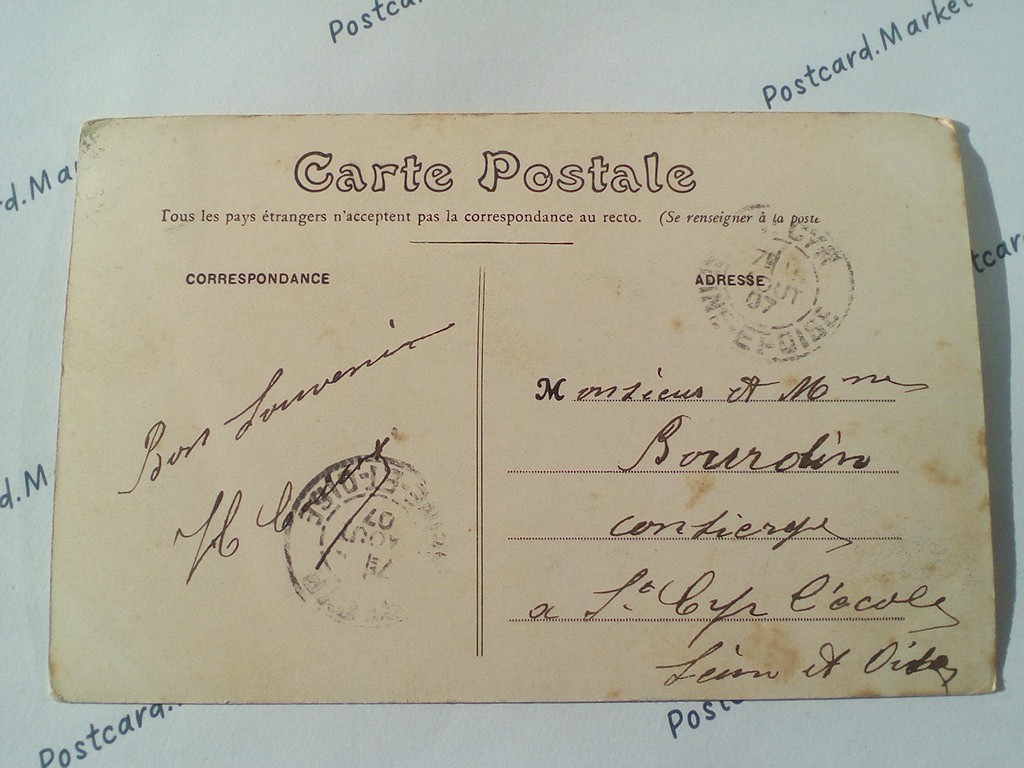 Postcard.Market
Carte Postale
Tous les pays étrangers n'acceptent pas la correspondance au recto. (Se renseigner à la poste
CORRESPONDANCE
ADRESSE
CYR
AOUT
07
SEINE-ET-OISE
Bon Souvenir
H
Monsieur et Mme
Bourdin
concierge
a St Cyr l'école
Seine et Oise
SEINE-ET-OISE
07
Postcard.
Post